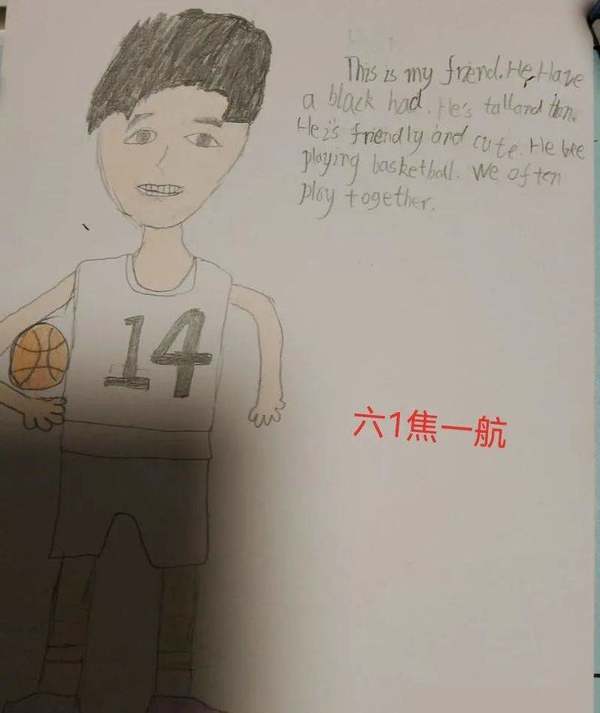 This is my friend. He Have
a black had. He's tall and
He is friendly and cute. He
playing basketball. We often
play together.
14
六1焦一航